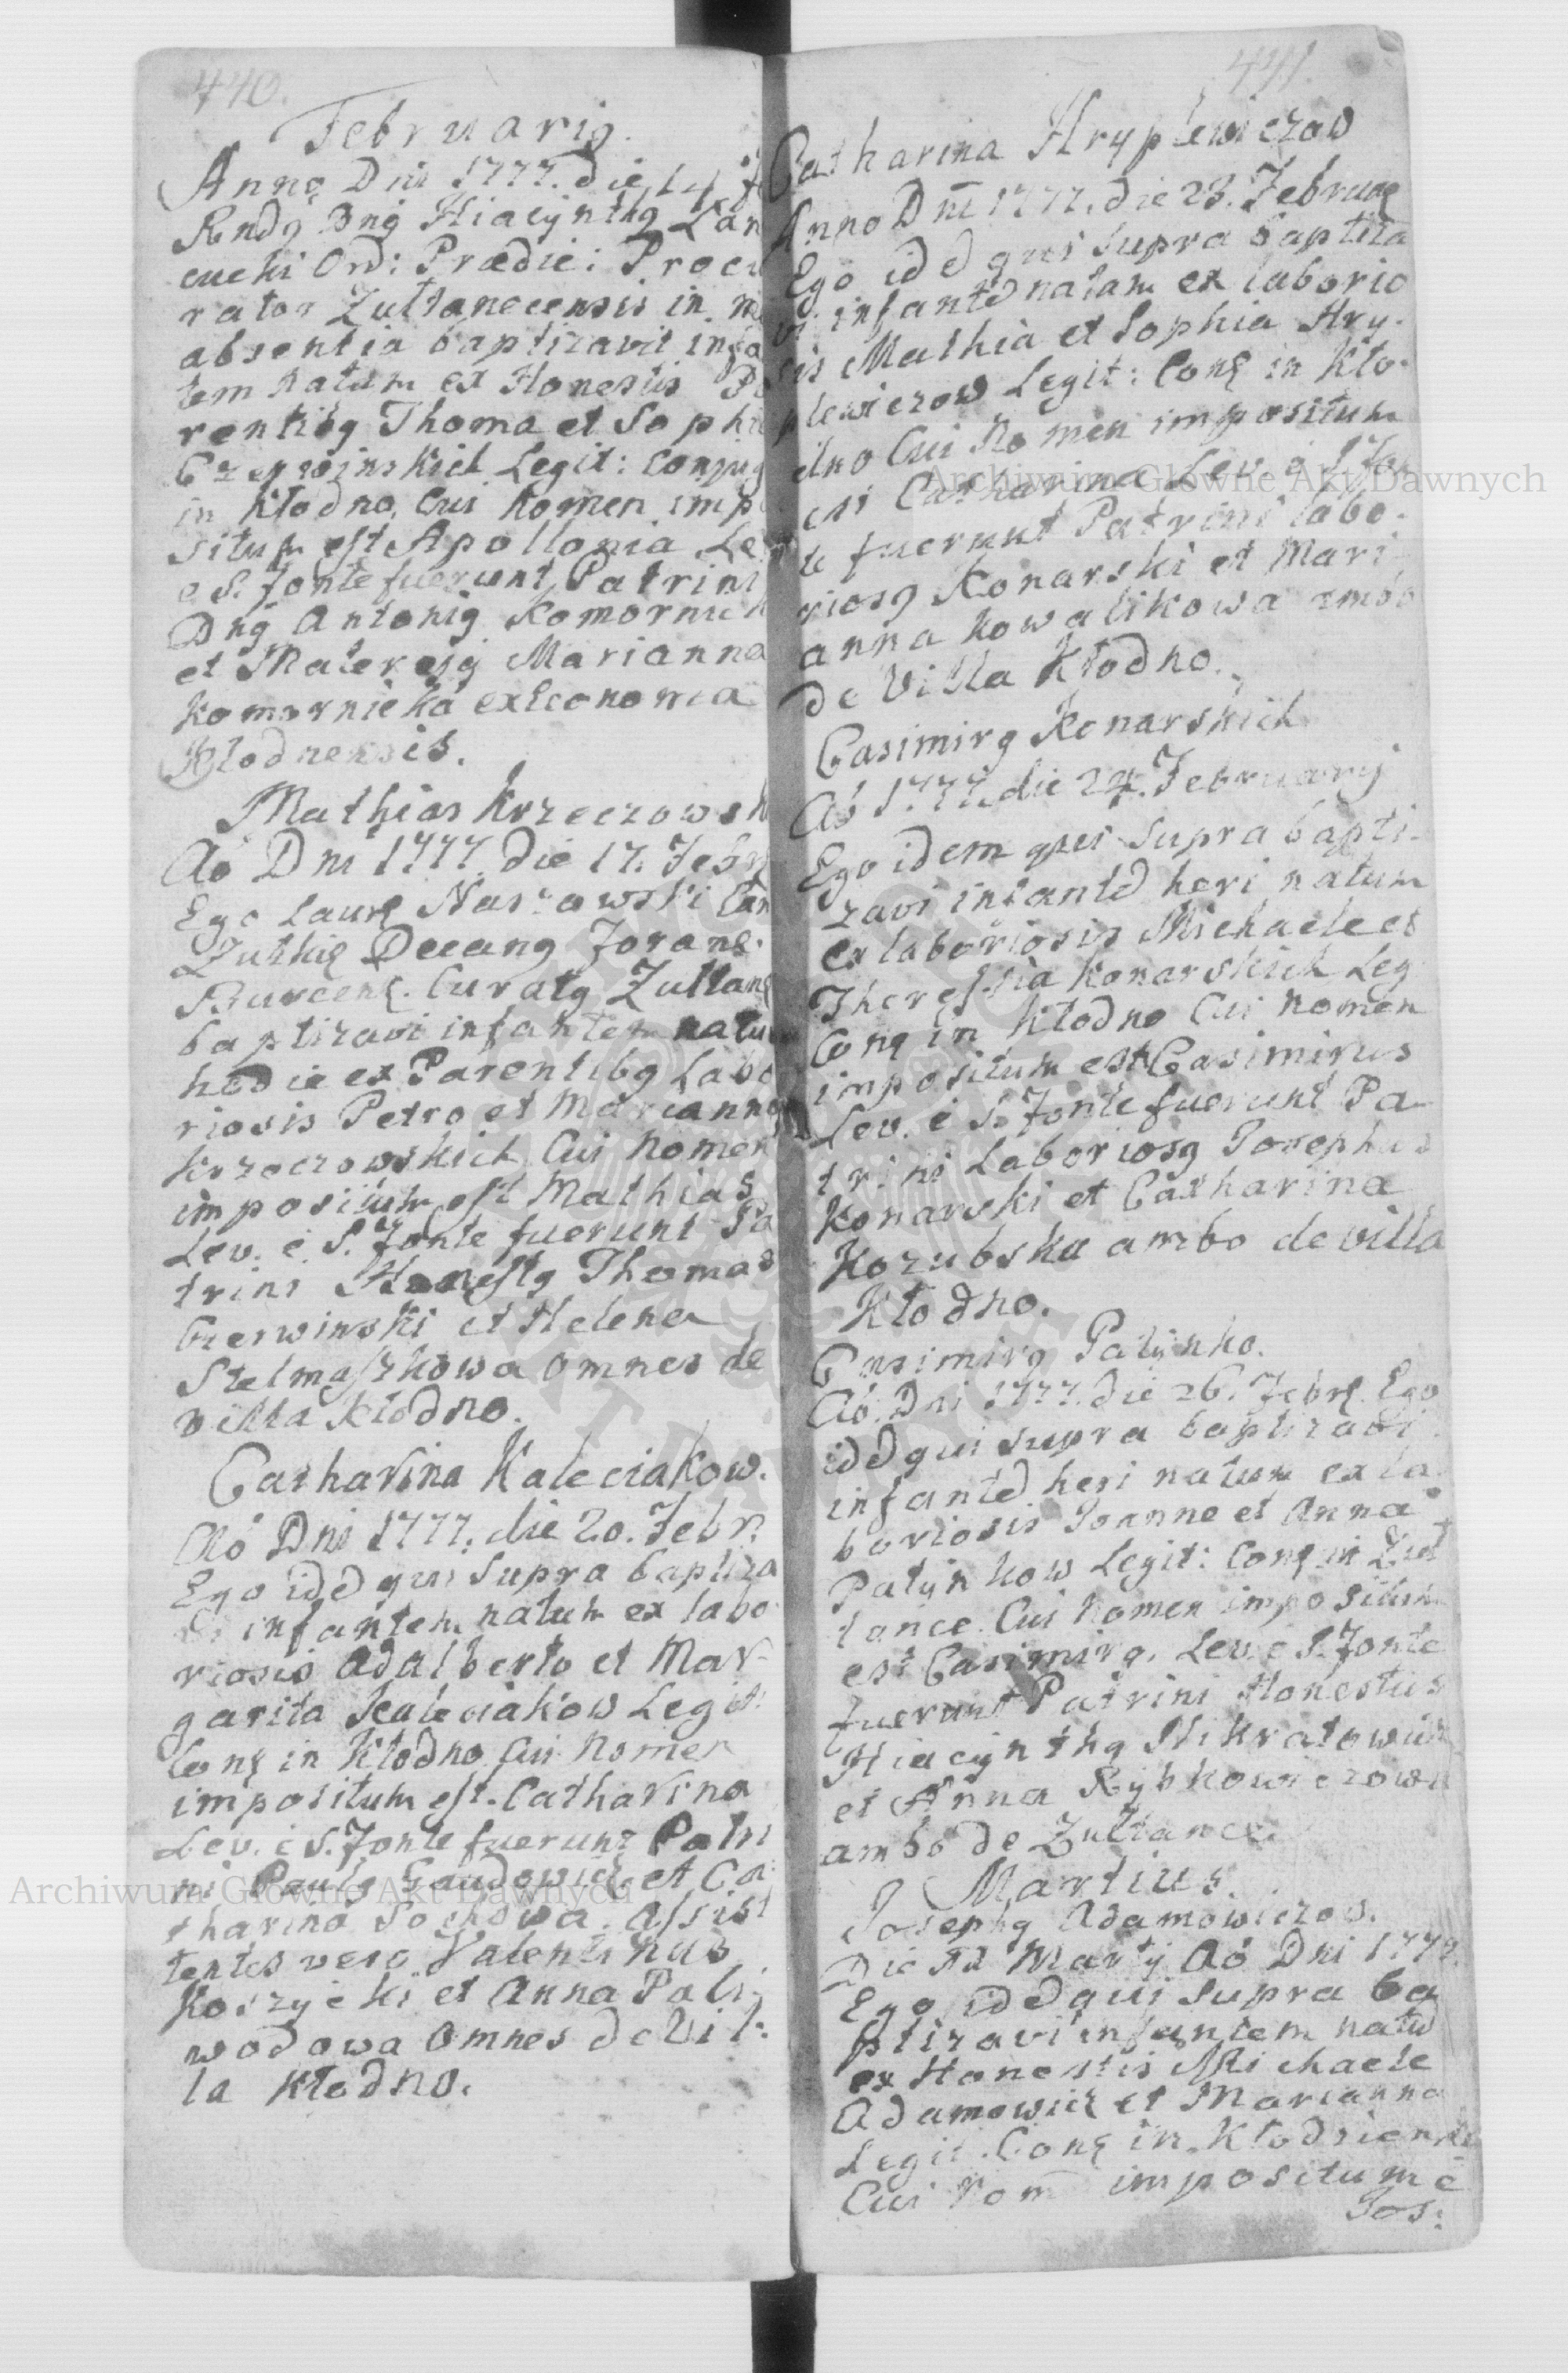 440.
Februarig.
Anno Dni 1777. die 14 F
Rndg Dng Hiacynthg Lan
cucki Ord: Prædic: Procu
rator Zułtanecensis in m
absentia baptizavit infa
tem natum ex Honestis Pa
rentibg Thoma et Sophi
Czerwinskich Legit: Conjug
in Kłodno, Cui Nomen impo
situm est Apollonia Le
e S. fonte fuerunt Patrini
Dng Antonig Komornick
et Mater ejg Marianna
Komornicka ex Economia
Kłodnensis.
Mathias Krzeczowsk
Ao Dni 1777 die 17. Febr
Ego Laur Naszowski Can
Zutkie Decang Forane.
Buscen. Curatg Zułtan
baptizavi infantem natu
hodie ex Parentibg Labo
riosis Petro et Marianna
Krzeczowskich Cui Nomen
impositum est Mathias
Lev. e S. fonte fuerunt Pa
trini Honestg Thomas
Cierwinski et Helena
Stelmaszkowa omnes de
villa Kłodno.
Catharina Kaleciakow.
Ao Dni 1777. die 20. Febr.
Ego idd qui supra baptiza
vi infantem natum ex labo
riosis Adalberto et Mar-
garita Kaleciakow Legit:
Conj in Kłodno Cui Nomen
impositum est. Catharina
Lev. e S. Fonte fuerunt Patri
ni Paulg Gaudowicz et Ca:
tharina Sochowa. Assist
tentes vero Valentinus
Koszycki et Anna Pali
wodowa Omnes de Vil:
la Kłodno.
441.
Catharina Hryplewiczow
Anno Dni 1777. die 23. Februar
Ego idd qui supra baptiza
vi infantd natam ex laborio
sis Mathia et Sophia Hry-
plewiczow Legit: Conj in Kło-
dno Cui Nomen impositum
est Catharina Lev. e S Fon
te fuerunt Patrini labo-
riosg Konarski et Mari-
anna Kowalikowa ambo
de Villa Kłodno.
Casimirg Konarskich
Ao 1777. die 24. February
Ego idem qui supra bapti-
zavi infantd heri natum
ex laboriosis Michaele et
Theressia Konarskich Leg
Conj in Kłodno Cui Nomen
impositum est Casimirus
Lev. e S. Fonte fuerunt Pa
trini Laboriosg Josephus
Konarski et Catharina
Kozubska ambo de villa
Kłodno.
Casimirg Patynko.
Ao. Dni 1777. die 26. Febr. Ego
idd qui supra baptizavi
infantd heri natum ex la
boriosis Joanne et Anna
Patynkow Legit: Conj in Zuł
tance. Cui Nomen impositum
est Casimirg. Lev. e S. Fonte
fuerunt Patrini Honestus
Hiacynthg Nikratowicz
et Anna Rybkowiczowa
ambo de Zułtance.
Martius.
Josephg Adamowiczow.
Die Marty Ao Dni 1777.
Ego idd qui supra ba
ptizavi infantem natu
ex Honestis Michaele
Adamowicz et Marianna
Legit. Conj in Kłodzien
Cui Nom impositum e
Jos:
Archiwum Główne Akt Dawnych
Archiwum Główne Akt Dawnych